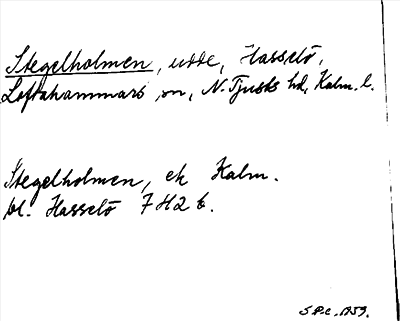 Stegelholmen, udde, Hasselö,
Loftahammars sn, N. Tjusts hd, Kalm. l.
Stegelholmen, ek Kalm.
bl. Hasselö 7 H2 b.
S.P.C. 1959.